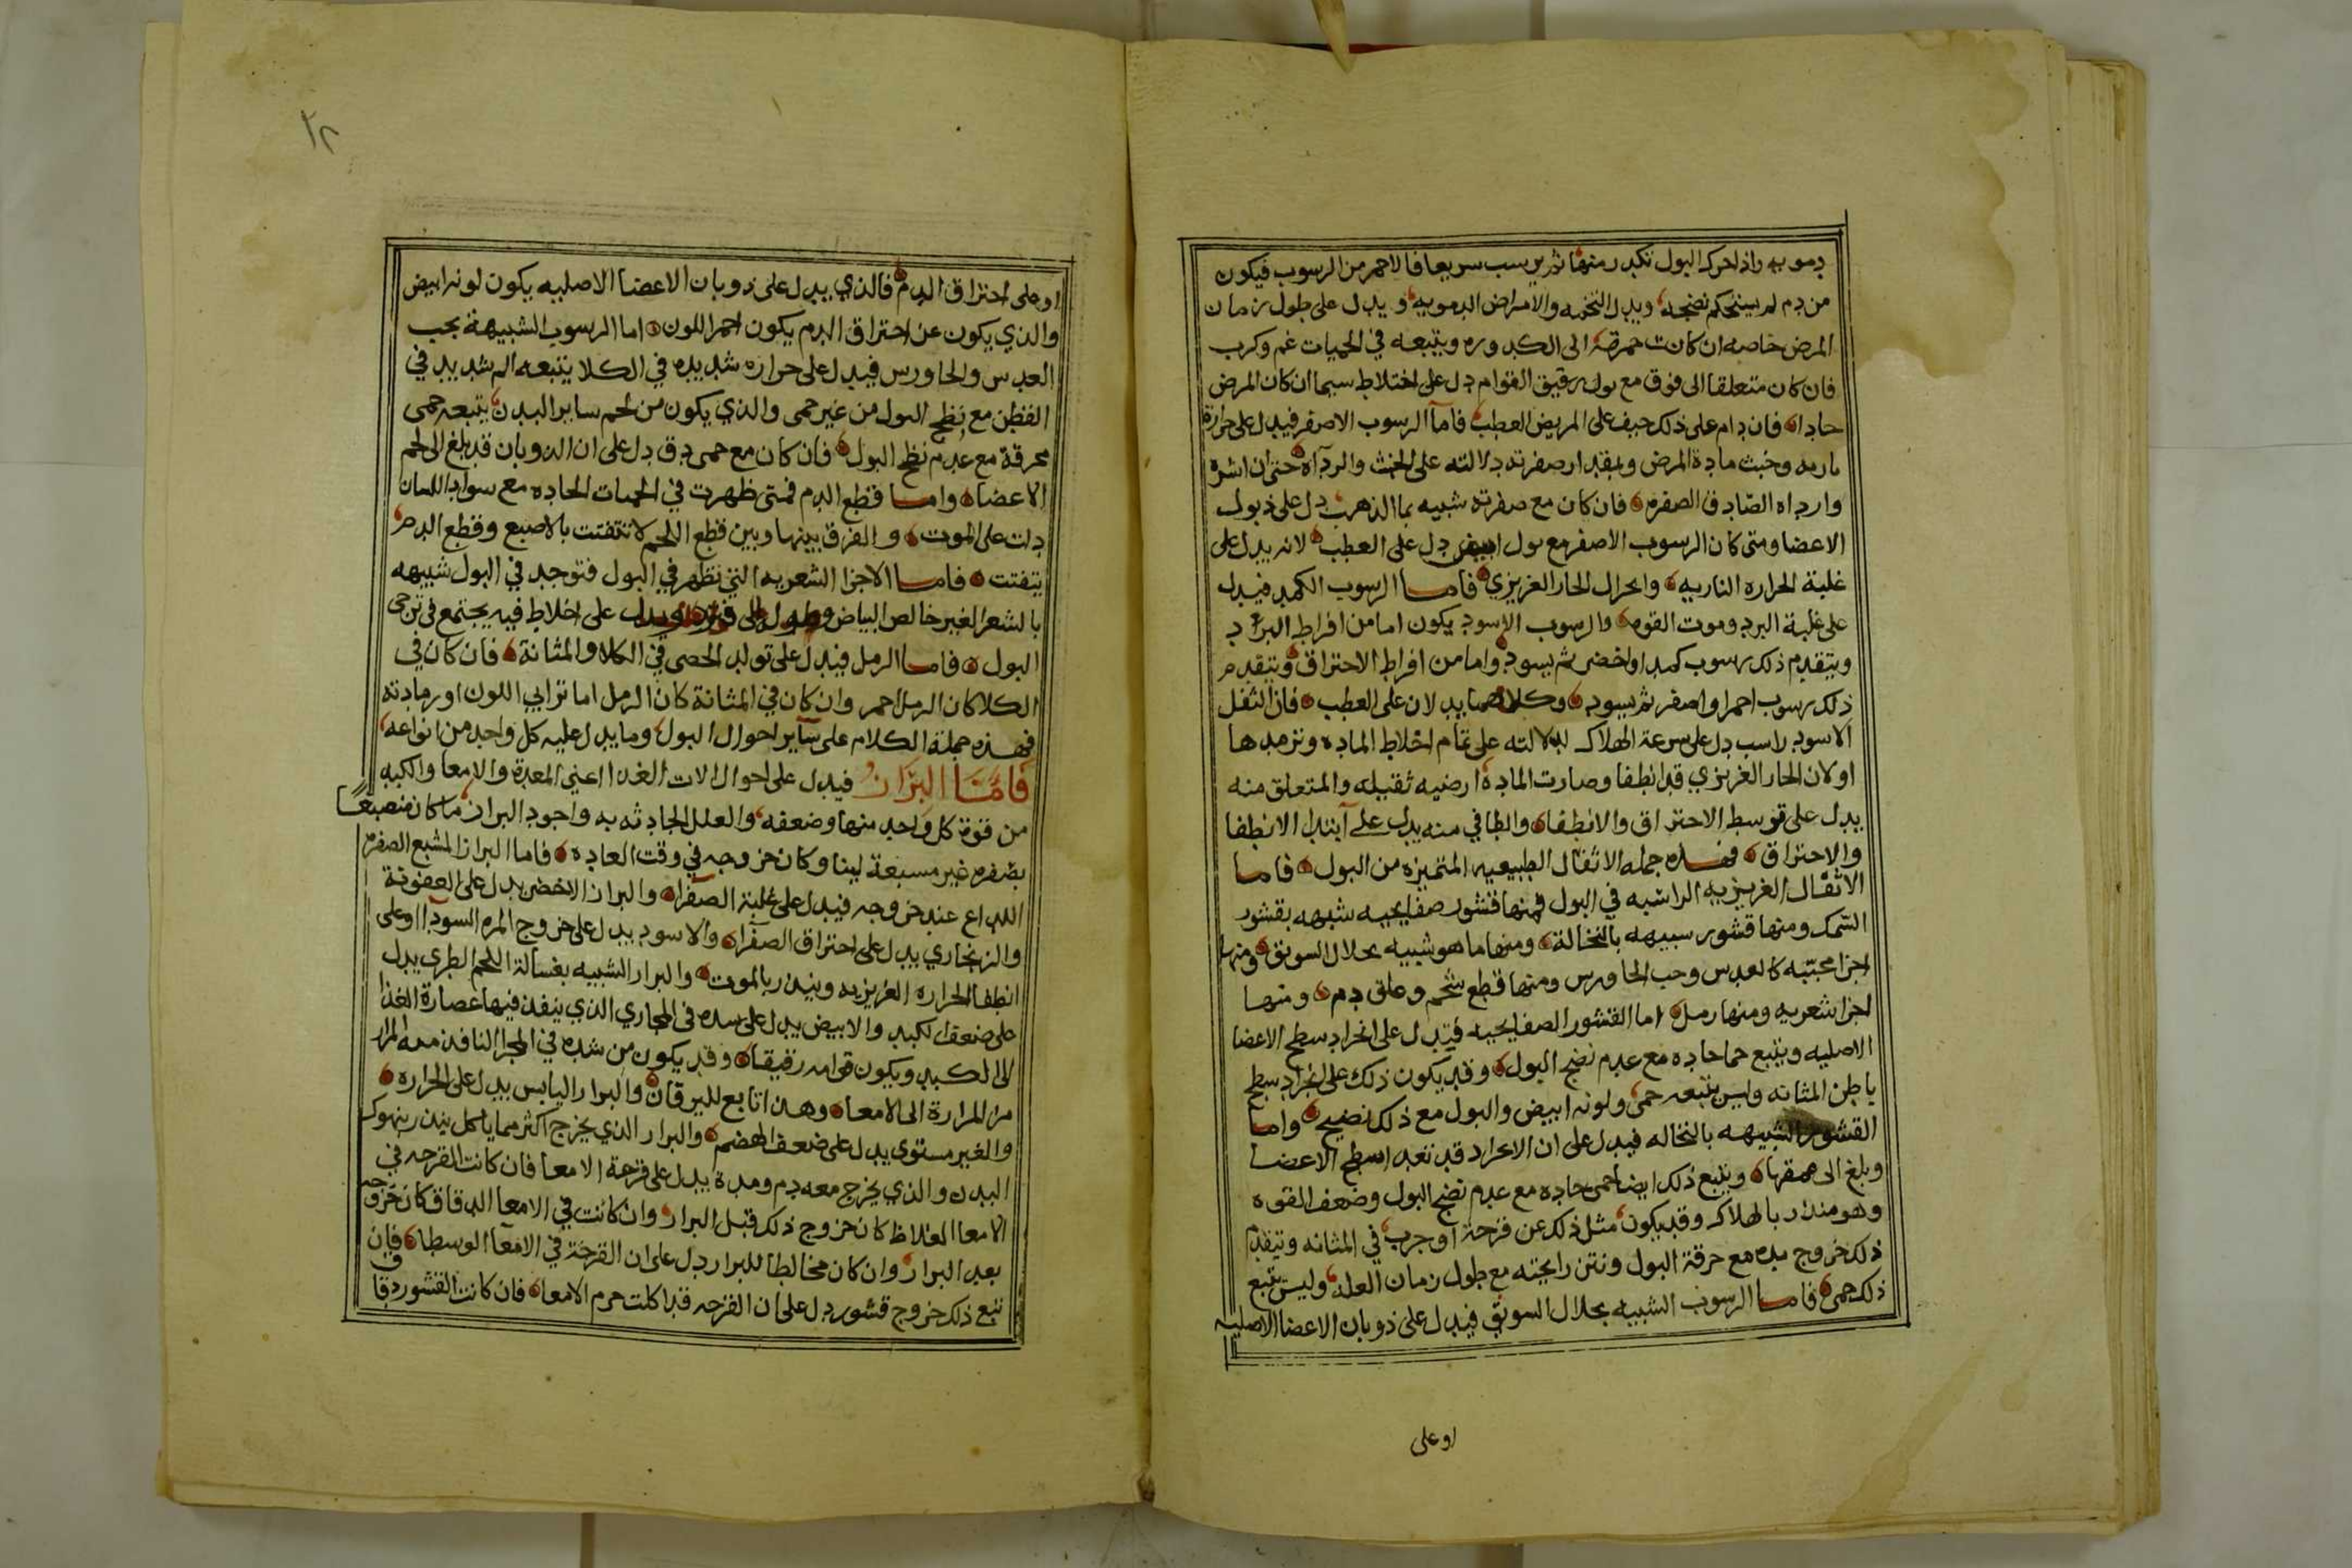 دمويه واذا حرك البول تكدر منها ثم يرسب سريعا فالاحمر من الرسوب فيكون
من دم لم يستحكم نضجه ويدل التخمه والامراض الدمويه ويدل على طول زمان
المرض خاصه ان كانت حمرته الى الكدوره ويتبعه في الحميات غم وكرب
فان كان متعلقا الى فوق مع بول رقيق القوام دل على اختلاط سيما ان كان المرض
حادا فان دام على ذلك خيف على المريض العطب فاما الرسوب الاصفر فيدل على حرارة
ناريه وخبث مادة المرض وبمقدار صفرته دلالته على الخبث والرداه حتى ان اشره
وارداه الصادق الصفره فان كان مع صفرته شبيه بما الذهب دل على ذبول
الاعضا ومتى كان الرسوب الاصفر مع بول ابيض دل على العطب لانه يدل على
غلبة الحراره الناريه وانحلال الحار الغريزي فاما الرسوب الكمد فيدل
على غلبة البرد وموت القوه والرسوب الاسود يكون اما من افراط البرد
ويتقدم ذلك رسوب كمد او اخضر ثم يسود واما من افراط الاحتراق ويتقدم
ذلك رسوب احمر او اصفر ثم يسود وكلاهما يدلان على العطب فان الثفل
الاسود راسب دل على سرعة الهلاك لدلالته على تمام اختلاط الماده وترمدها
او لان الحار الغريزي قد انطفا وصارت المادة ارضيه ثقيله والمتعلق منه
يدل على توسط الاحتراق والانطفا والطافي منه يدل على ابتدا الانطفا
والاحتراق فهذه جمله الاثفال الطبيعيه المتميزه من البول فاما
الاثفال الغريزيه الراسبه في البول فمنها قشور صفايحيه شبيهه بقشور
السمك ومنها قشور سبيهه بالنخالة ومنها ما هو شبيه بحلال السويق ومنها
اجزا محببه كالعدس وحب الجاورس ومنها قطع شحم وعلق دم ومنها
اجزا شعريه ومنها رمل اما القشور الصفايحيه فيدل على انجراد سطح الاعضا
الاصليه ويتبع حما حاده مع عدم نضج البول وقد يكون ذلك على انجراد سطح
باطن المثانه وليس يتبعه حمى ولونه ابيض والبول مع ذلك نضيج واما
القشور الشبيهه بالنخاله فيدل على ان الانجراد قد تعدا سطح الاعضا
وبلغ الى عمقها ويتبع ذلك ايضا حمى حاده مع عدم نضج البول وضعف القوه
وهو منذر بالهلاك وقد يكون مثل ذلك عن قرحة او جرب في المثانه ويتقدم
ذلك خروج مده مع حرقة البول ونتن رايحته مع طول زمان العله وليس يتبع
ذلك حمى فاما الرسوب الشبيه بحلال السويق فيدل على ذوبان الاعضا الاصليه
او على
٢٨
او على احتراق الدم فالذي يدل على ذوبان الاعضا الاصليه يكون لونه ابيض
والذي يكون عن احتراق الدم يكون احمر اللون اما الرسوب الشبيهة بحب
العدس والجاورس فيدل على حراره شديده في الكلا يتبعه الم شديد في
القطن مع نضج البول من غير حمى والذي يكون من لحم ساير البدن يتبعه حمى
محرقة مع عدم نضج البول فان كان مع حمى دق دل على ان الذوبان قد بلغ الى لحم
الاعضا واما قطع الدم فمتى ظهرت في الحميات الحاده مع سواد اللسان
دلت على الموت والفرق بينها وبين قطع اللحم لا تتفتت بالاصبع وقطع الدم
يتفتت فاما الاجزا الشعريه التي تظهر في البول فتوجد في البول شبيهه
بالشعر الغير خالص البياض وطول يدل على اخلاط فيه يجتمع في ترجى
البول فاما الرمل فيدل على تولد الحصى في الكلا والمثانة فان كان في
الكلا كان الرمل احمر وان كان في المثانة كان الرمل اما ترابي اللون او رمادته
فهذه جملة الكلام على ساير احوال البول وما يدل عليه كل واحد من انواعه
فاما البراز فيدل على احوال الات الغدا اعني المعدة والامعا والكبد
من قوة كل واحد منها وضعفه والعلل الحادثه به واجود البراز ما كان منصبغا
بصفره غير مسبعة لينا وكان خروجه في وقت العاده فاما البراز المشبع الصفره
اللداع عند خروجه فيدل على غلبة الصفرا والبراز الاخضر يدل على العفونة
والزنجاري يدل على احتراق الصفرا والاسود يدل على خروج المره السودا او على
انطفا الحراره الغريزيه وينذر بالموت والبراز الشبيه بغسالة اللحم الطري يدل
على ضعف الكبد والابيض يدل على سده في المجاري الذي ينفذ فيها عصارة الغذا
الى الكبد ويكون قوامه رقيقا وقد يكون من سده في المجرا النافذ معه المرار
من المرارة الى الامعا وهذا تابع لليرقان والبراز اليابس يدل على الحراره
والغير مستوي يدل على ضعف الهضم والبراز الذي يخرج اكثر مما ياكل ينذر بنهوك
البدن والذي يخرج معه دم ومدة يدل على قرحة الامعا فان كانت القرحه في
الامعا الغلاظ كان خروج ذلك قبل البراز وان كانت في الامعا الدقاق كان خروجه
بعد البراز وان كان مخالطا للبراز دل على ان القرحة في الامعا الوسطا فان
تبع ذلك خروج قشور دل على ان القرحه قد اكلت جرم الامعا فان كانت القشور دقاق